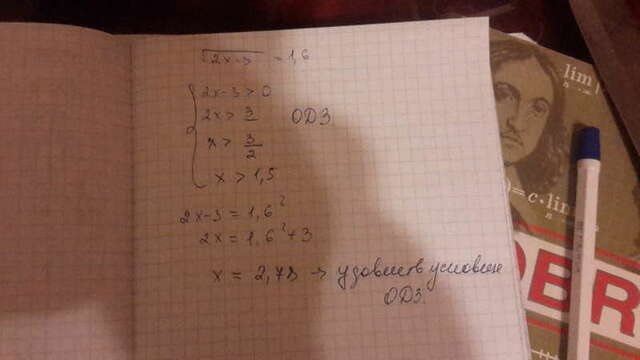 √2x-3 = 1,6
2x-3 > 0
2x > 3
x > 3/2
x > 1,5
ОДЗ
2x-3 = 1,6²
2x = 1,6²+3
x = 2,78 → удовлетв условие
ОДЗ.
lim
= c·lim
BR